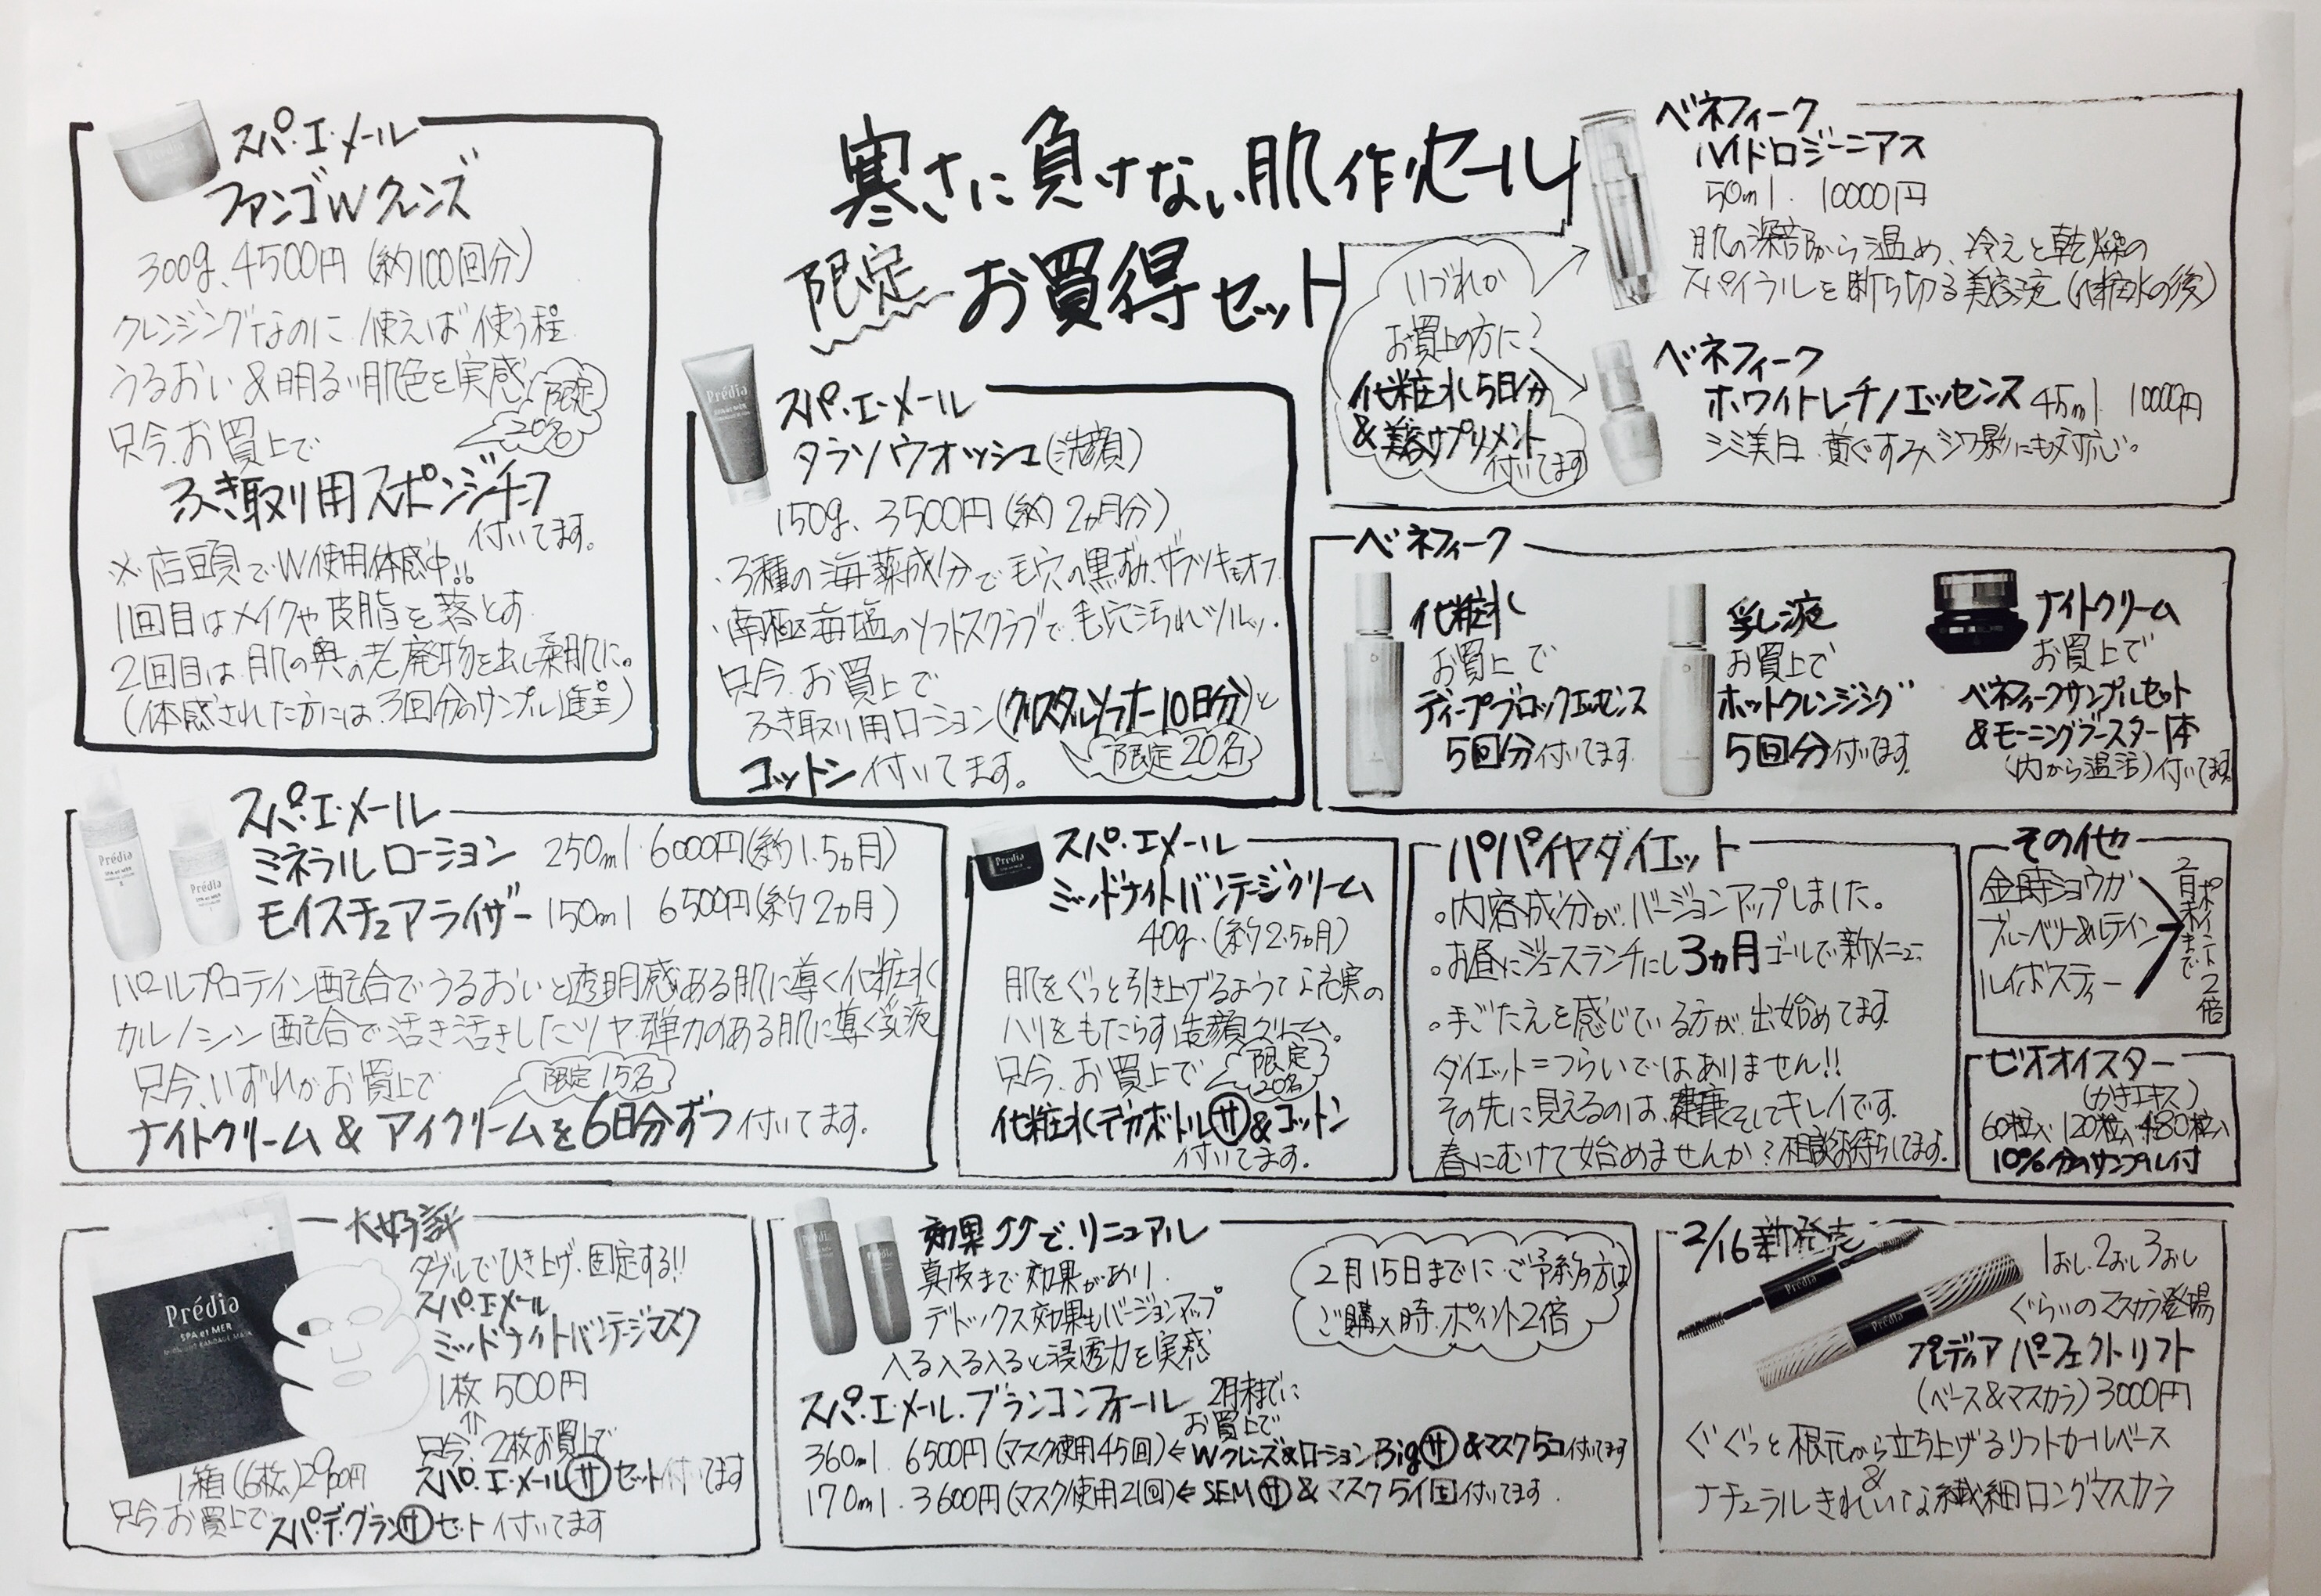 寒さに負けない肌作りセール
限定 お買得セット
スパ・エ・メール
ファンゴWクレンズ
300g、4500円(約100回分)
クレンジングなのに、使えば使う程
うるおい&明るい肌色を実感
限定20名
只今、お買上で
ふき取り用スポンジチーフ
付いてます。
※店頭でW使用体感中!!
1回目はメイクや皮脂を落とす。
2回目は、肌の奥の老廃物を出し柔肌に。
(体感された方には、3回分のサンプル進呈)
Prédia
スパ・エ・メール
タラソウォッシュ(洗顔)
150g、3500円(約2ヵ月分)
・3種の海藻成分で毛穴の黒ずみ、ザラツキもオフ
・南極海塩のソフトスクラブで、毛穴汚れツルッ・
只今、お買上で
ふき取り用ローション(クリスタルソフナー10日分)と
コットン付いてます。
限定20名
ベネフィーク
ハイドロジーニアス
50ml. 10000円
肌の深部から温め、冷えと乾燥の
スパイラルを断ち切る美容液(化粧水の後)
いづれか
お買上の方に?
化粧水5日分
&美容サプリメント
付いてます
ベネフィーク
ホワイトレチノエッセンス 45ml 10000円
シミ美白、黄ぐすみ、シワ影にも対応。
ベネフィーク
化粧水
お買上で
ディープブロックエッセンス
5回分付いてます
乳液
お買上で
ホットクレンジング
5回分付いてます
ナイトクリーム
お買上で
ベネフィークサンプルセット
&モーニングブースター1本
(内から温活)付いてます
Prédia
SPA et MER
Prédia
SPA et MER
スパ・エ・メール
ミネラルローション 250ml 6000円(約1.5ヵ月)
モイスチュアライザー 150ml 6500円(約2ヵ月)
パールプロテイン配合でうるおいと透明感ある肌に導く化粧水
カルノシン配合で活き活きしたツヤ、弾力のある肌に導く乳液
只今、いずれかお買上で
限定15名
ナイトクリーム&アイクリームを6日分ずつ付いてます。
Prédia
スパ・エ・メール
ミッドナイトバンテージクリーム
40g、(約2.5ヵ月)
肌をぐっと引き上げるような充実の
ハリをもたらす造顔クリーム。
只今、お買上で
限定20名
化粧水デカボトルサ&コットン
付いてます。
パパイヤダイエット
。内容成分が、バージョンアップしました。
。お昼にジュースランチにし3ヵ月ゴールで新メニュー
。手ごたえを感じている方が、出始めてます
ダイエット=つらいではありません!!
その先に見えるのは、健康そしてキレイです。
春にむけて始めませんか?相談お待ちしてます。
その他
金時ショウガ
ブルーベリー&ルテイン
ルイボスティー
2月末まで
ポイント2倍
ビオオイスター
(かきエキス)
60粒入・120粒入・480粒入
10%分のサンプル付
大好評
Prédia
SPA et MER
MIDNIGHT BANDAGE MASK
ダブルでひき上げ、固定する!!
スパ・エ・メール
ミッドナイトバンテージマスク
1枚 500円
只今、2枚お買上で
スパ・エ・メールサセット付いてます
1箱(6枚)2900円
只今、お買上で、スパ・デ・グランサセット付いてます
効果↗↗で、リニューアル
真皮まで効果があり、
デトックス効果もバージョンアップ
入る入る入ると浸透力を実感
2月15日までにご予約の方は
ご購入時、ポイント2倍
スパ・エ・メール・ブランコンフォール 2月末までに
お買上で
360ml. 6500円(マスク使用45回)⇐Wクレンズ&ローションBigサ&マスク5コ付いてます
170ml. 3600円(マスク使用21回)⇐SEMサ&マスク5個付いてます.
2/16新発売
Prédia
Prédia
1おし、2おし3おし
ぐらいのマスカラ登場
プレディア パーフェクトリフト
(ベース&マスカラ)3000円
ぐぐっと根元から立ち上げるリフトカールベース
&
ナチュラルきれいな繊細ロングマスカラ